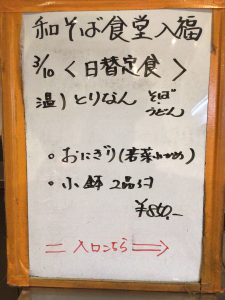 和そば食堂入福
3/10 <日替定食>
温) とりなん そば
うどん
。おにぎり(若菜
。小鉢 2品付
¥850.-
入口こちら